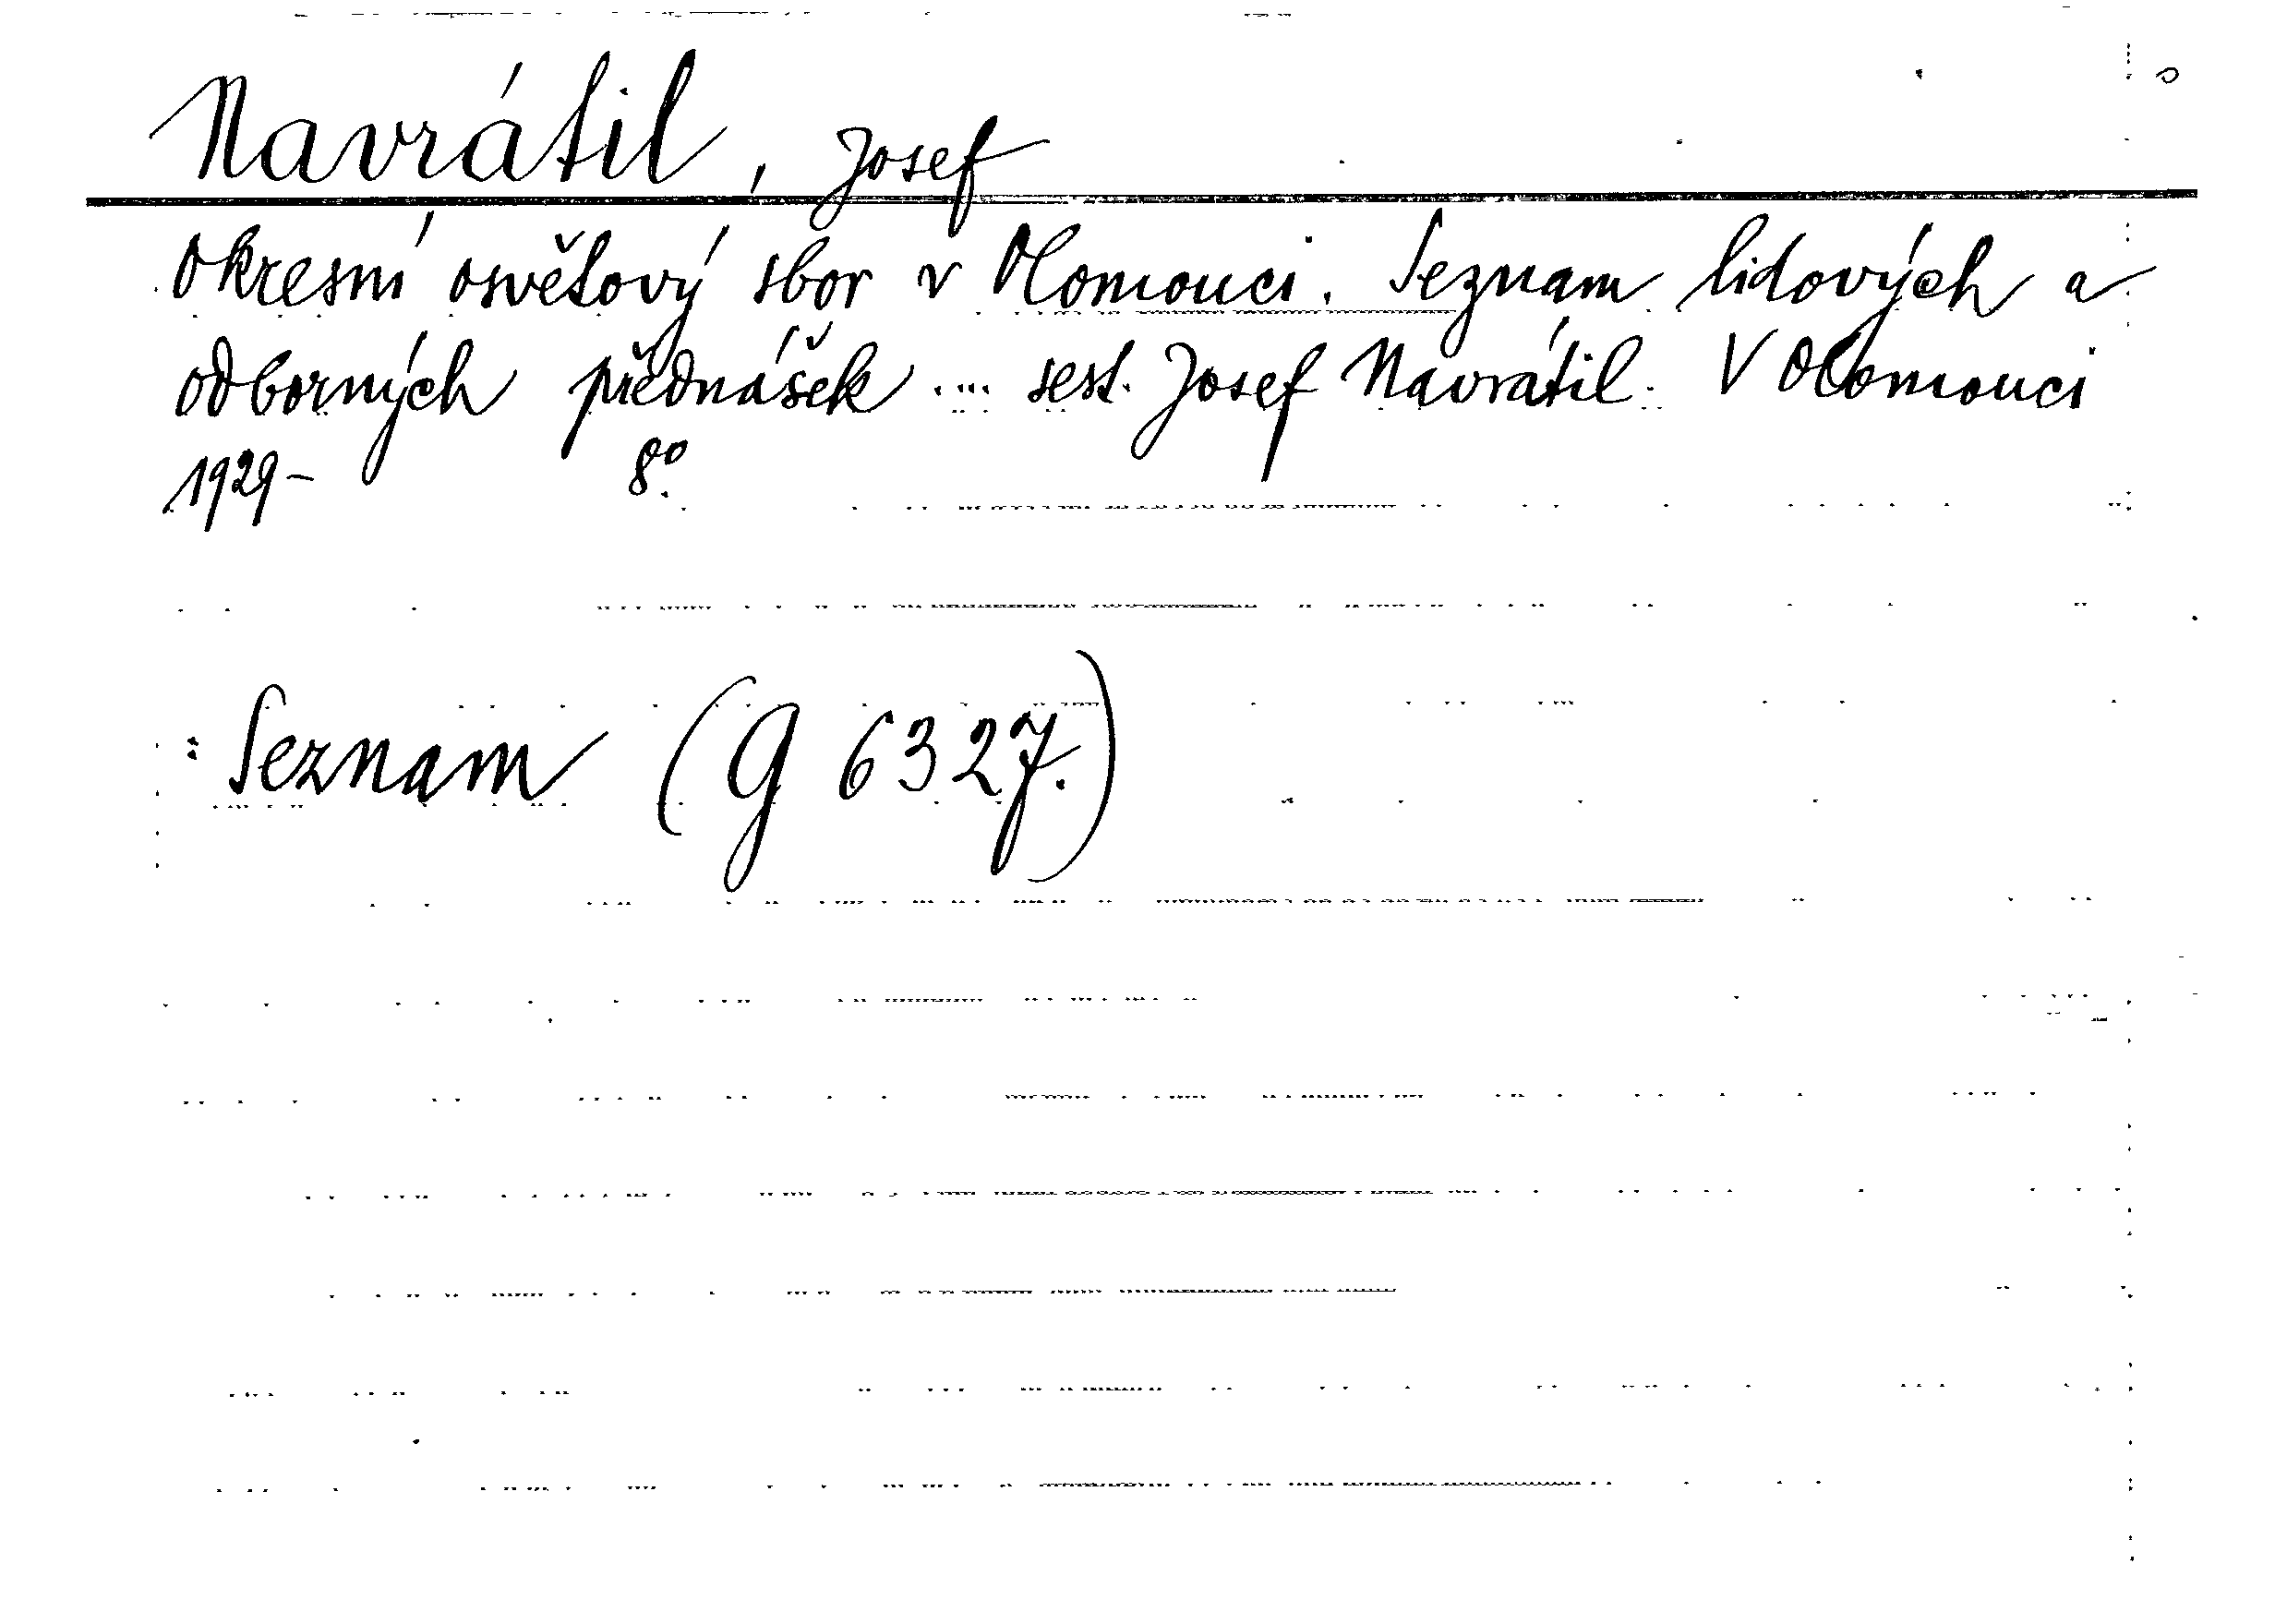 Navrátil, Josef
Okresní osvětový sbor v Olomouci. Seznam lidových a
odborných přednášek .... sest. Josef Navrátil. V Olomouci
1929- 8°.
: Seznam (G 6327.)